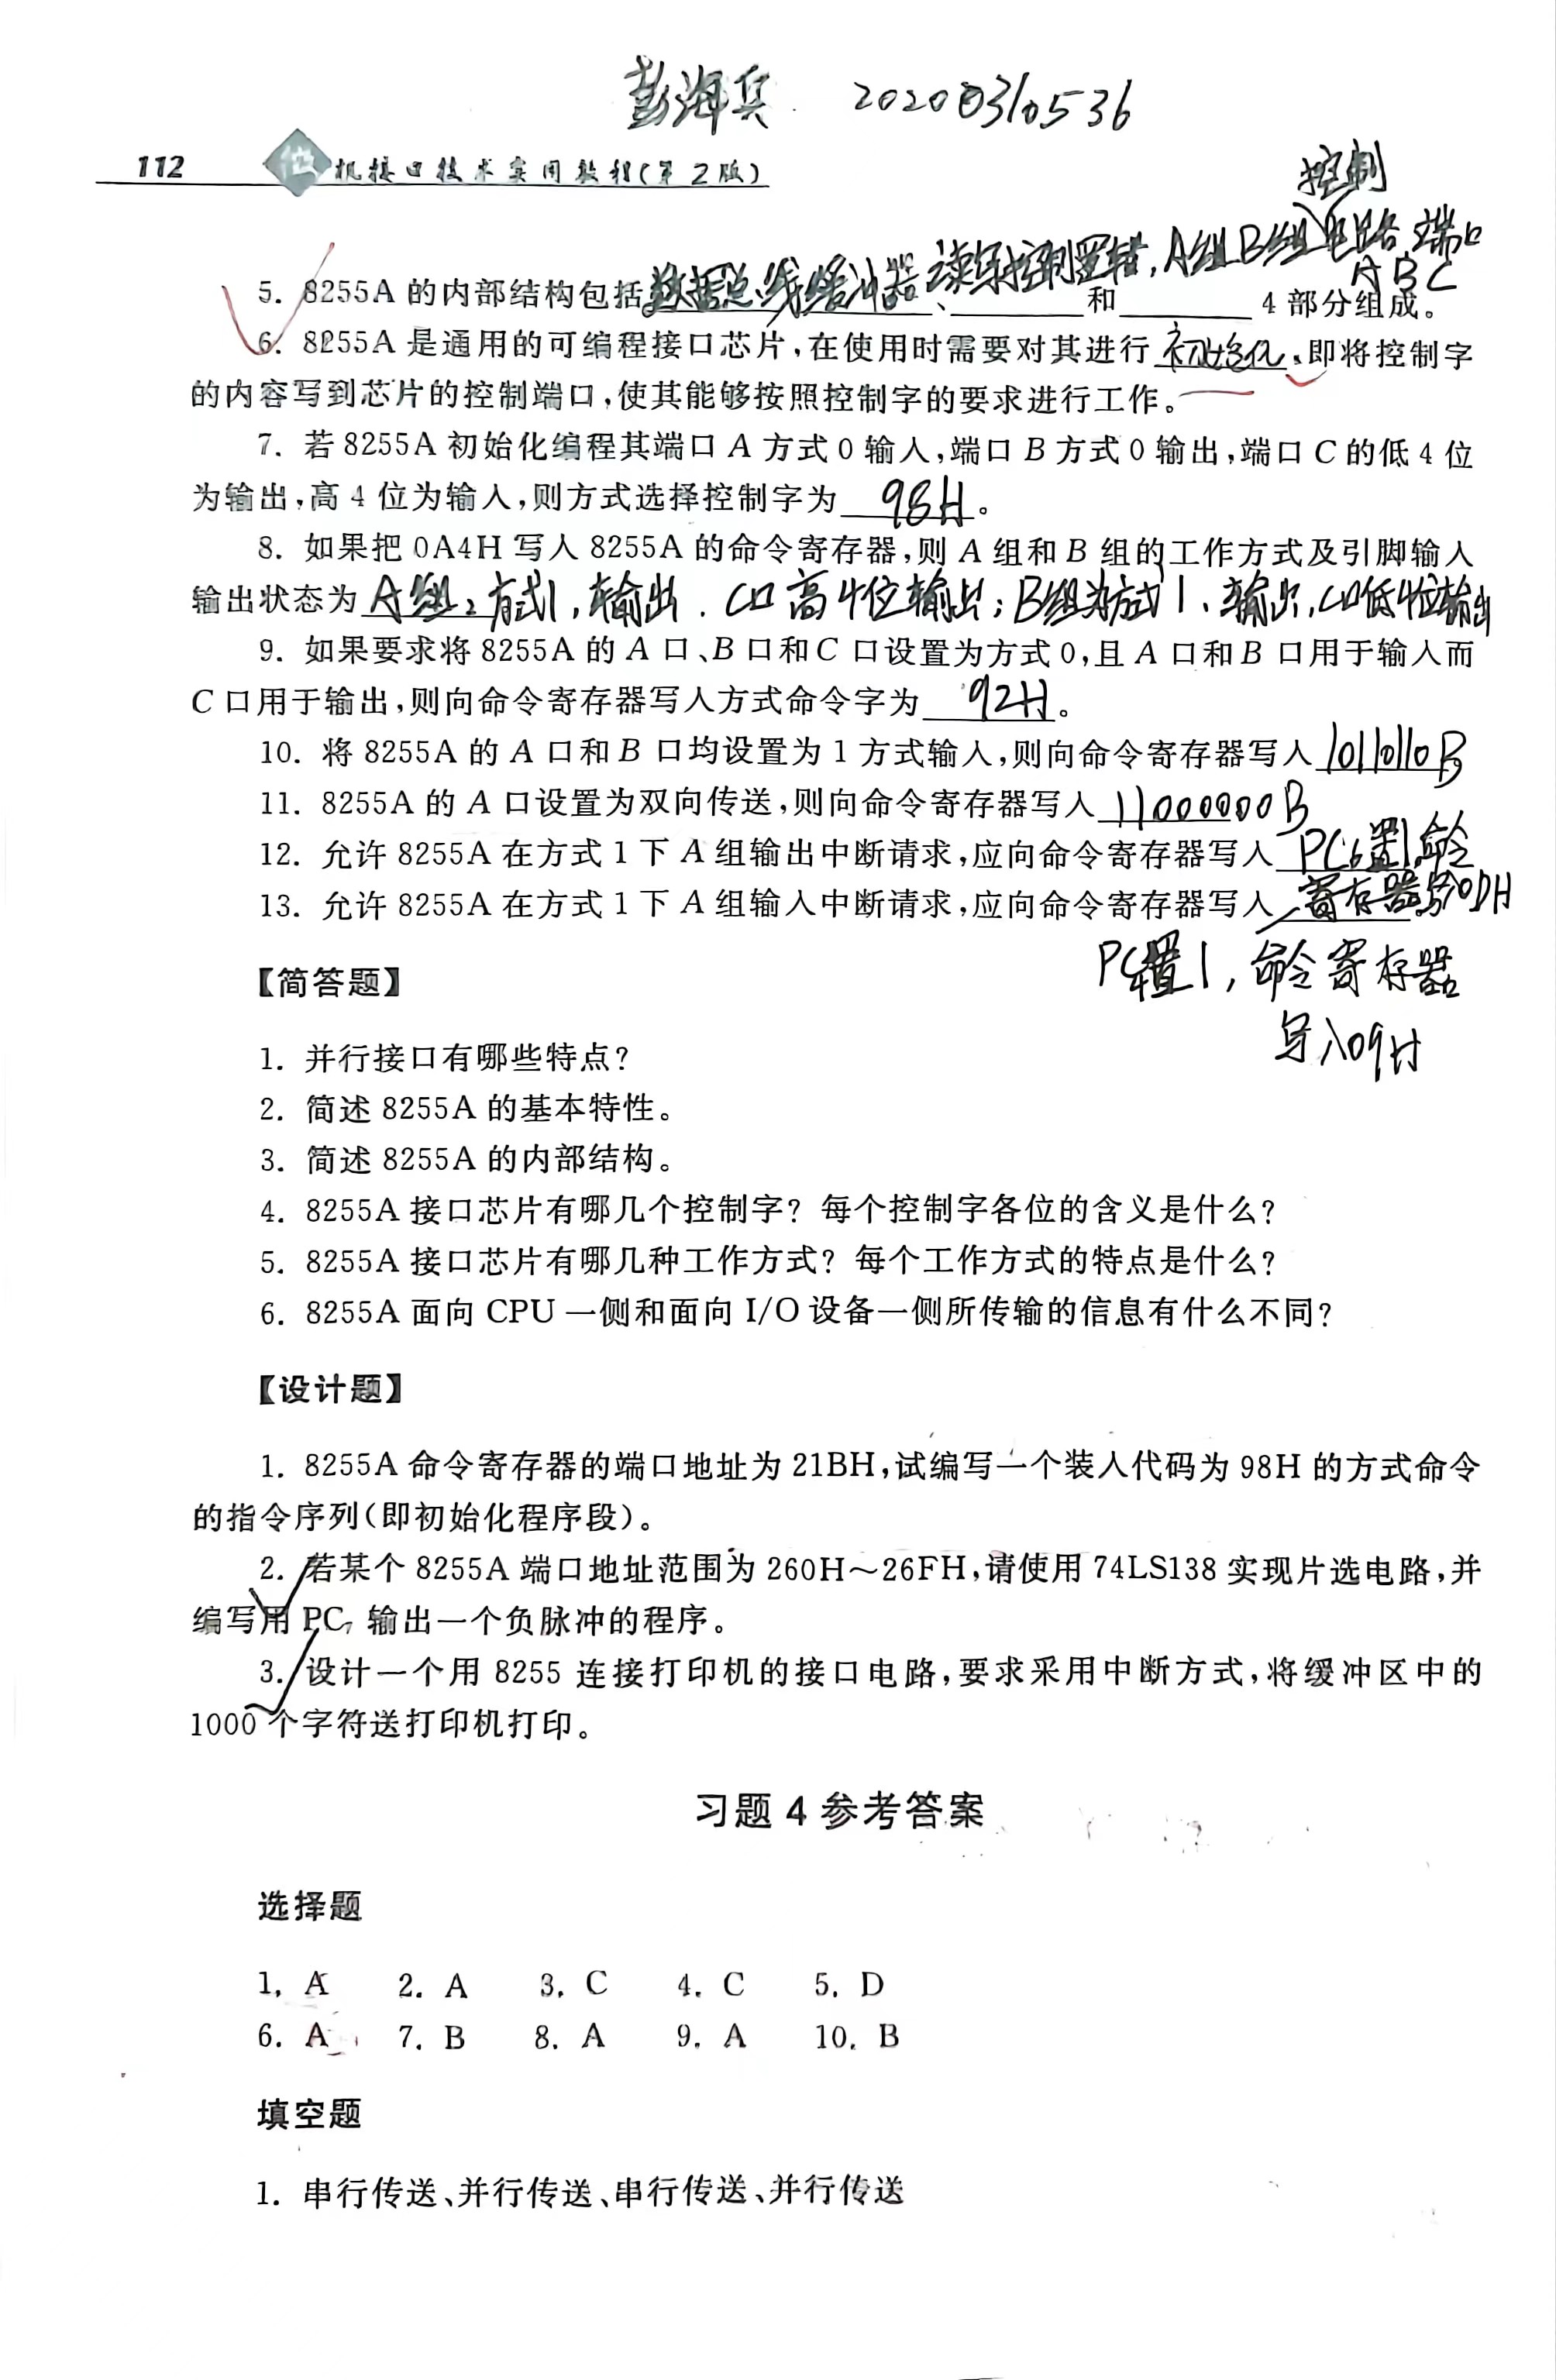 彭海兵 20200310536
112 微机接口技术实用教程(第2版)
控制
数据总线缓冲器 读写控制逻辑,A组B组电路 端口
A B C
5. 8255A 的内部结构包括____、____和____ 4 部分组成。
6. 8255A 是通用的可编程接口芯片,在使用时需要对其进行 初始化,即将控制字
的内容写到芯片的控制端口,使其能够按照控制字的要求进行工作。
7. 若 8255A 初始化编程其端口 A 方式 0 输入,端口 B 方式 0 输出,端口 C 的低 4 位
为输出,高 4 位为输入,则方式选择控制字为 98H。
8. 如果把 0A4H 写入 8255A 的命令寄存器,则 A 组和 B 组的工作方式及引脚输入
输出状态为 A组:方式1,输出.C口高4位输出;B组为方式1、输出,C口低4位输出
9. 如果要求将 8255A 的 A 口、B 口和 C 口设置为方式 0,且 A 口和 B 口用于输入而
C 口用于输出,则向命令寄存器写入方式命令字为 92H。
10. 将 8255A 的 A 口和 B 口均设置为 1 方式输入,则向命令寄存器写入 10110110B
11. 8255A 的 A 口设置为双向传送,则向命令寄存器写入 11000000B
12. 允许 8255A 在方式 1 下 A 组输出中断请求,应向命令寄存器写入 PC6置1,命令
13. 允许 8255A 在方式 1 下 A 组输入中断请求,应向命令寄存器写入 寄存器写0DH
PC4置1,命令寄存器
写入09H
【简答题】
1. 并行接口有哪些特点?
2. 简述 8255A 的基本特性。
3. 简述 8255A 的内部结构。
4. 8255A 接口芯片有哪几个控制字? 每个控制字各位的含义是什么?
5. 8255A 接口芯片有哪几种工作方式? 每个工作方式的特点是什么?
6. 8255A 面向 CPU 一侧和面向 I/O 设备一侧所传输的信息有什么不同?
【设计题】
1. 8255A 命令寄存器的端口地址为 21BH,试编写一个装入代码为 98H 的方式命令
的指令序列(即初始化程序段)。
2. 若某个 8255A 端口地址范围为 260H~26FH,请使用 74LS138 实现片选电路,并
编写用 PC7 输出一个负脉冲的程序。
3. 设计一个用 8255 连接打印机的接口电路,要求采用中断方式,将缓冲区中的
1000 个字符送打印机打印。
习题 4 参考答案
选择题
1. A 2. A 3. C 4. C 5. D
6. A 7. B 8. A 9. A 10. B
填空题
1. 串行传送、并行传送、串行传送、并行传送